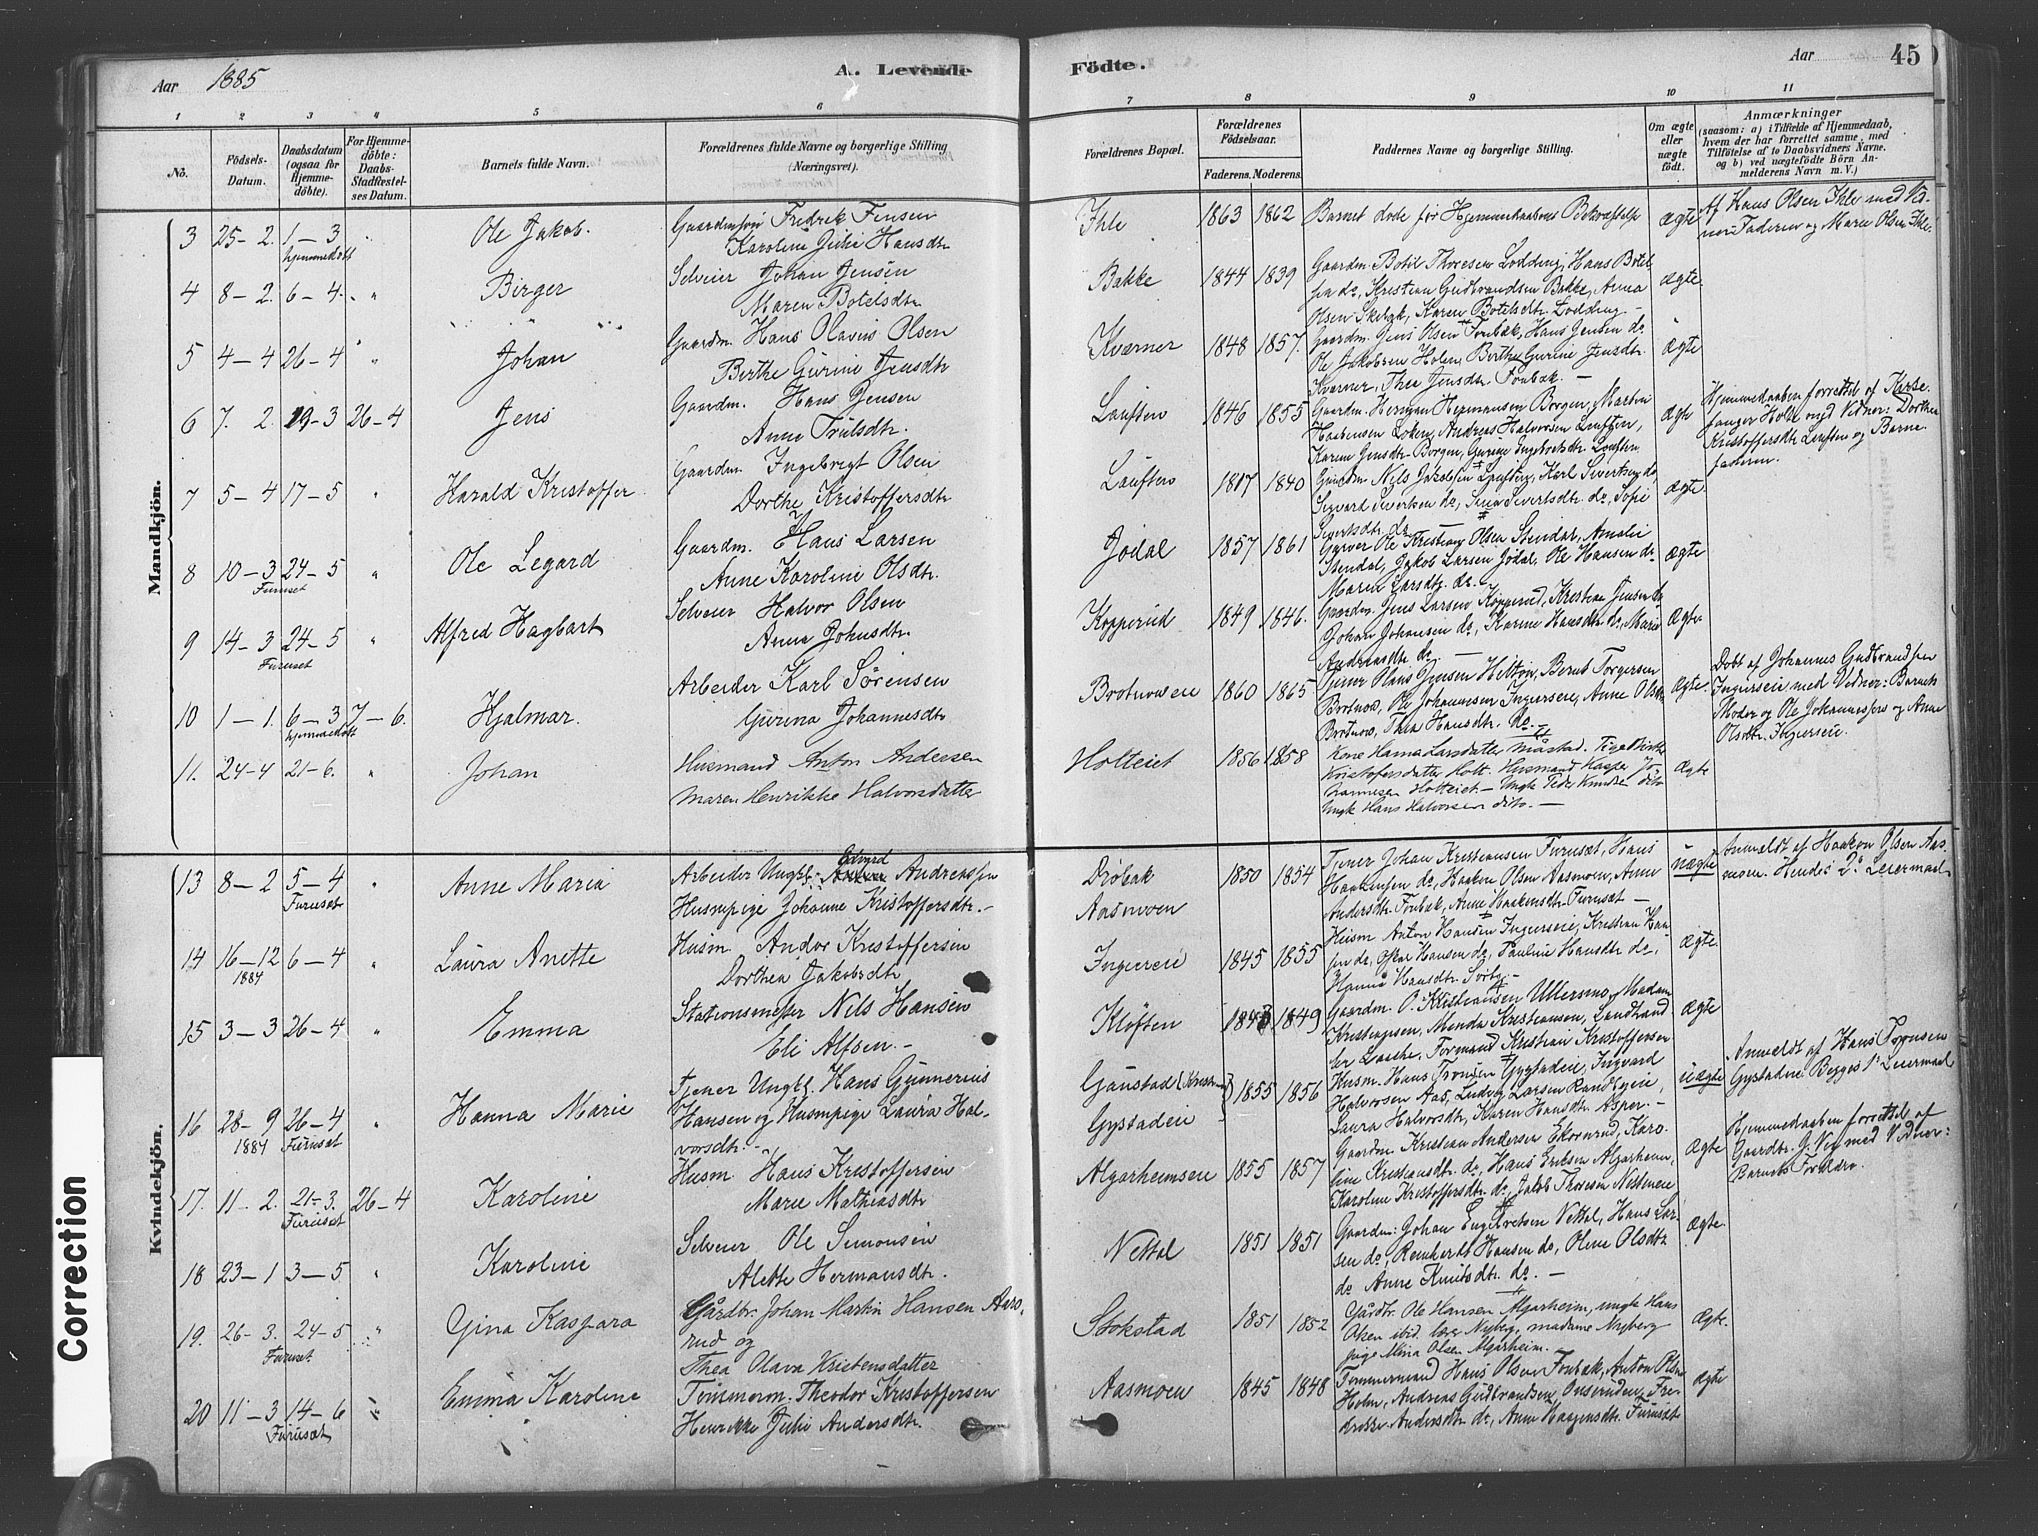 Aar 1885
A. Levende
1 2 3 4 5 6
No.
Födsels-Datum.
Daabsdatum (ogsaa for Hjemme-döbte).
For Hjemme-döbte: Daabs-Stadfæstel-ses Datum.
Barnets fulde Navn.
Forældrenes fulde Navne og borgerlige Stilling (Næringsvei).
Mandkjön.
3 25-2. 1-3 " Ole Jakob. Gaardmsøn Fredrik Jensen
hjemmedøbt Karoline Julie Hansdtr
4 8-2. 6-4. " Birger Selveier Johan Jensen
Maren Botelsdtr
5 4-4 26-4 " Johan Gaardm. Hans Olavus Olsen
Berthe Gurine Jensdtr
6 7. 2. 19-3 26-4 Jens Gaardm. Hans Jensen
Anne Trulsdtr.
7 5-4 17-5 " Harald Kristoffer Gaardm. Ingebrigt Olsen
Dorthe Kristoffersdtr
8 10-3 24-5 " Ole Legard Gaardm. Hans Larsen
Furuset Anne Karoline Olsdtr.
9 14-3 24-5 " Alfred Hagbart Selveier Halvor Olsen
Furuset Anna Johnsdtr.
10 1-1. 6-3 7-6. Hjalmar. Arbeider Karl Sörensen
hjemmedøbt Gurina Johannesdtr
11. 24-4 21-6. " Johan Husmand Anton Andersen
Maren Henrikke Halvorsdatter
Kvindekjön.
13 8-2 5-4 " Anne Maria Arbeider Ungk. Edvard Andreassen
Furuset Huspige Johanne Kristoffersdtr.-
14 16-12 6-4 " Laura Anette Husm. Andor Kristoffersen
1884 Dorthea Jakobsdtr
15 3-3 26-4 " Emma Stationsmester Nils Hansen
Eli Alfsen.-
16 28-9 26-4 " Hanna Marie Tjener Ungk. Hans Gunnerius
1884 Furuset Hansen og Huspige Laura Hal-
vorsdtr.-
17. 11-2. 21-3. 26-4 Karoline Husm Hans Kristoffersen
Furuset Marie Mathiasdtr
18 23-1 3-5 " Karoline Selveier Ole Simonsen
Alette Hermansdtr.
19. 26-3. 24-5 " Gina Kaspara Gårdbr. Johan Martin Hansen Aaro-
Furuset. rud og
Thea Olava Kristensdatter
20 11-3 14-6 " Emma Karoline Tømmerm. Theodor Kristoffersen
Furuset Henrikke Julie Andersdtr.
Födte.
Aar 45
7 8 9 10 11
Forældrenes Bopæl.
Forældrenes Födselsaar.
Faderens. Moderens.
Faddernes Navne og borgerlige Stilling.
Om ægte eller uægte födt.
Anmærkninger (saasom: a) i Tilfælde af Hjemmedaab, hvem der har forrettet samme, med Tilföielse af to Daabsvidners Navne, og b) ved uægtefödte Börn An-melderens Navn m. V.)
Ihle 1863 1862 Barnet døde før Hjemmedaabens Bekræftelse ægte Af Hans Olsen Ihle med Vid-
ner: Faderen og Maren Olsen Ihle.
Bakke 1844 1839 Gaardm. Botil Thoresen Lodding, Hans Botel-
sen do, Kristian Gudbrandsen Bakke, Anna
Olsen Skibak, Karen Botelsdtr Lodding - ægte
Kværner 1848 1857. Gaardm. Jens Olsen Fonbæk, Hans Jensen do
Ole Jakobsen Holen, Berthe Gurine Jensdtr
Kværner, Thea Jensdtr Fonbæk. - ægte
Lauften 1846 1855 Gaardm. Herman Hermansen Borgen, Martin
Haakensen Løken, Andreas Halvorsen Lauften,
Karen Jensdtr Borgen, Gurine Ingebretsdtr Lauften ægte
Hjemmedaaben forrettet af Kirke-
sanger Holt med Vidner: Dorthea
Kristoffersdtr Lauften og Barne-
faderen.
Lauften 1817 1840 Gaardm Nils Jakobsen Lauften, Karl Sivertsen do,
Sigvard Sivertsen do, Lina Sivertsdtr do, Sofie
Sivertsdtr. do ægte
Jødal 1857 1861 Garver Ole Kristian Olsen Stendal, Amalie
Stendal, Jakob Larsen Jødal, Ole Hansen do
Maren Larsdtr. do. ægte
Kopperud 1849 1846. Gaardm. Jens Larsen Kopperud, Kristian Jensen do
Johan Johansen do, Karine Hansdtr. do, Marie
Andreasdtr do ægte
Brotnoseie 1860 1865 Tjener Hans Jensen Hilton, Bernt Torgersen
Brotnos, Ole Johannesen Ingerseie, Anne Olsdtr
Brotnos, Thea Hansdtr. do. ægte
Døbt af Johannes Gudbrandsen
Ingerseie med Vidner: Barnets
Moder og Ole Johannesens og Anne
Olsdtr. Ingerseie.
Holteiet 1856 1858 Kone Hanna Larsdatter Måstad. Pige Birthe
Kristofersdatter Holt. Husmand Kasper Jo-
hannesen Holteiet - Ungk Peder Knudsen ditto
Ungk Hans Halvorsen ditto. - ægte
Drøbak 1850 1854 Tjener Johan Kristiansen Furuset, Hans
Aasmoen Haakensen do, Haakon Olsen Aasmoen, Anne
Andersdtr Fonbæk, Anne Haakensdtr Furuset - uægte
Anmeldt af Haakon Olsen Aas-
moen. Hendes 2det Leiermaal.
Ingerseie 1845 1855 Husm Anton Hansen Ingerseie, Kristian Han-
sen do, Oskar Hansen do, Pauline Hansdtr do,
Hanna Hansdtr Sørby - ægte
Kløften 1849 Gaardm. O. Kristiansen Ullersmo, Madam
Kristiansen, Menda Kristiansen, Landhand-
ler Lasche, Formand Kristian Kristoffersen ægte
Gaustad (Kristians) 1855 1856 Husm. Hans Tronsen Gystadeie, Ingvard
Gystadeie Halvorsen Aas, Ludvig Larsen Randbyeie,
Laura Halvorsdtr, Karen Hansdtr. Asper. - uægte
Anmeldt af Hans Tronsen
Gystadeie. Begges 1ste Leiermaal
Algarheimseie 1855 1857 Gaardm. Kristian Andersen Ekornrud, Karo-
line Kristiansdtr. do, Hans Eriksen Algarheim,
Karoline Kristoffersdtr do, Jakob Thoresen Nettmeie ægte
Hjemmedaaben forrettet af
Gaardbr. G. Ny med Vidner:
Barnets Forældre.
Nettel 1851 1851 Gaardm: Johan Engebretsen Nettel, Hans Lar-
sen do, Reinhardt Hansen do, Oline Olsdtr
do Anne Knutsdtr. do. - ægte
Stokstad 1851 1852 Gårdbr. Ole Hansen Algarheim, ungk. Hans
Olsen ibid. lærer Nyberg, madame Nyberg
pige Mina Olsen Algarheim. ægte.
Aasmoen 1845 1848 Tømmermand Hans Olsen Fonbæk, Anton Olsen
Holm, Andreas Gudbrandsen Onsrudeie, Fre-
drikke Andersdtr do, Anne Haagensdtr. Furuset ægte
Correction